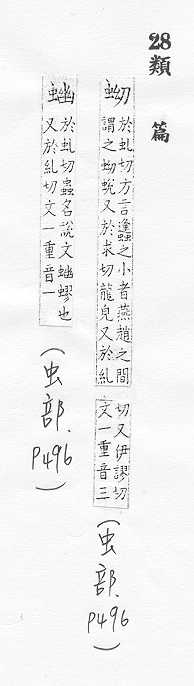 28類 篇
蚴
於虬切方言蠭之小者燕趙之間
謂之蚴蛻又於求切龍皃又於糺
切又伊謬切
文一重音三
(虫部. P496)
於虬切蟲名說文蟉也
又於糺切文一重音一
(虫部. P496)